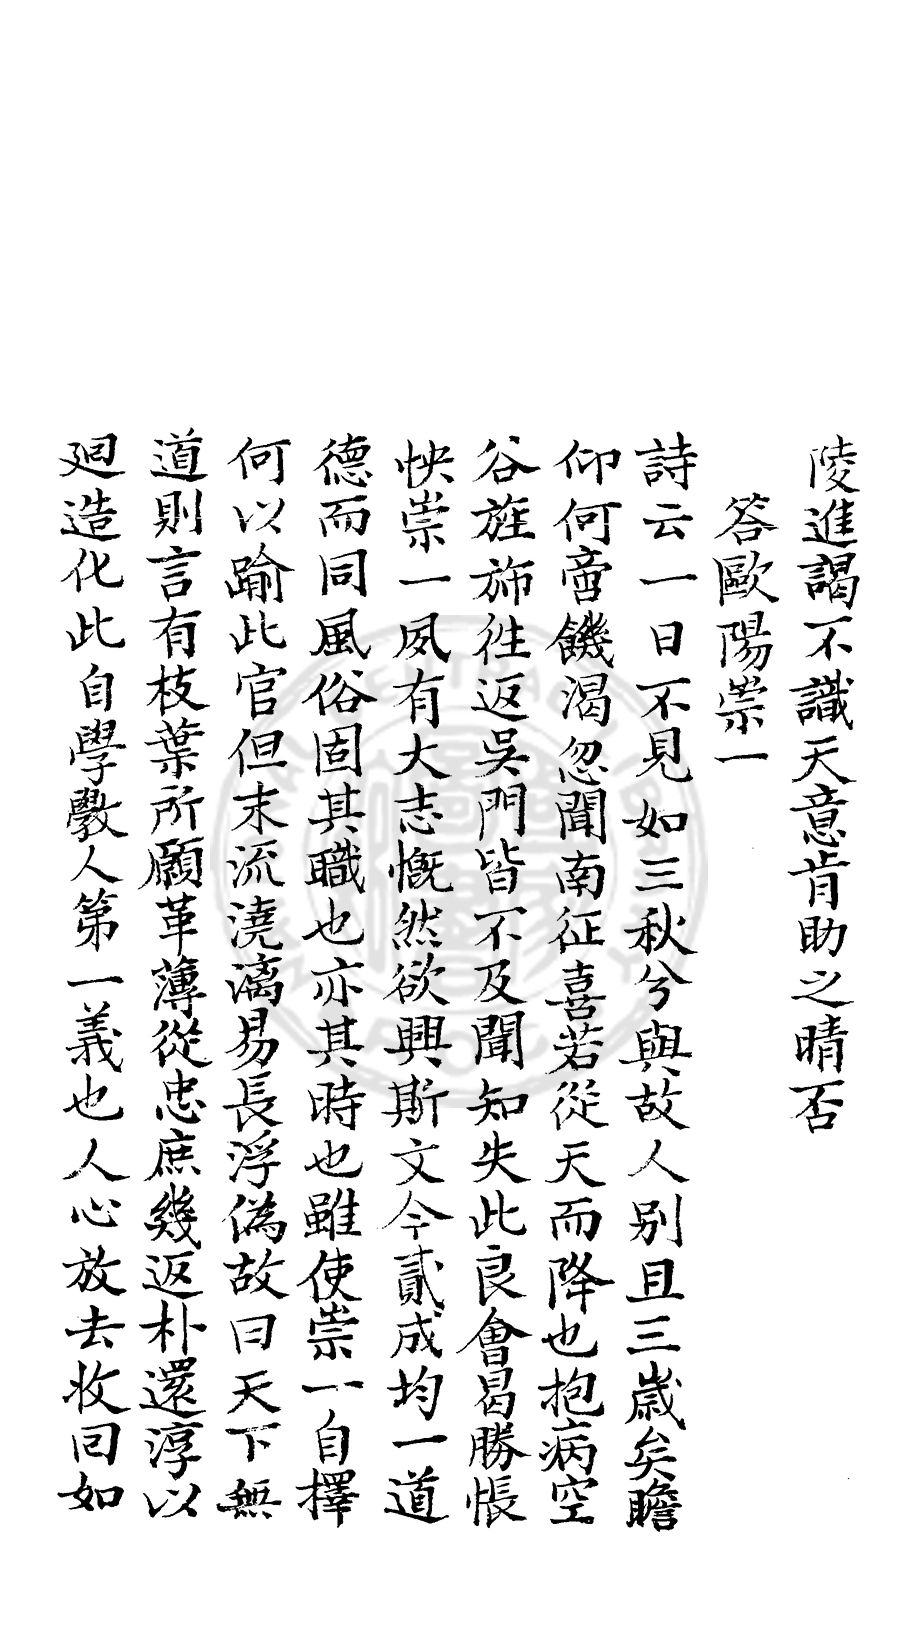 陵進謁不識天意肯助之晴否
答歐陽崇一
詩云一日不見如三秋兮與故人別且三歲矣瞻
仰何啻饑渴忽聞南征喜若從天而降也抱病空
谷旌斾徃返吳門皆不及聞知失此良會曷勝悵
怏崇一夙有大志慨然欲興斯文今貳成均一道
德而同風俗固其職也亦其時也雖使崇一自擇
何以踰此官但末流澆漓易長浮偽故曰天下無
道則言有枝葉所願革薄從忠庶幾返朴還淳以
廻造化此自學斅人第一義也人心放去收回如